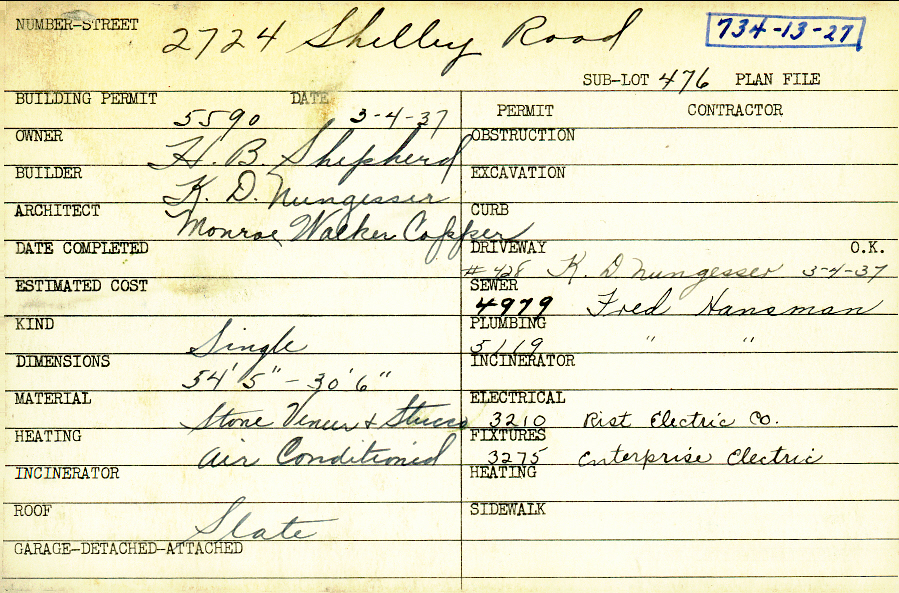 NUMBER-STREET 2724 Shelley Road 734-13-27
SUB-LOT 476 PLAN FILE
BUILDING PERMIT 5590 DATE 3-4-37
OWNER H. B. Shepherd
BUILDER K. D. Nungesser
ARCHITECT Monroe Walker Copper
DATE COMPLETED
ESTIMATED COST
KIND Single
DIMENSIONS 54' 5" - 30' 6"
MATERIAL Stone Veneer & Stucco
HEATING Air Conditioned
INCINERATOR
ROOF Slate
GARAGE-DETACHED-ATTACHED
PERMIT CONTRACTOR
OBSTRUCTION
EXCAVATION
CURB
DRIVEWAY O.K.
#428 K. D Nungesser 3-4-37
SEWER
4979 Fred Hansman
PLUMBING
5119 " "
INCINERATOR
ELECTRICAL
3210 Rist Electric Co.
FIXTURES
3275 Enterprise Electric
HEATING
SIDEWALK